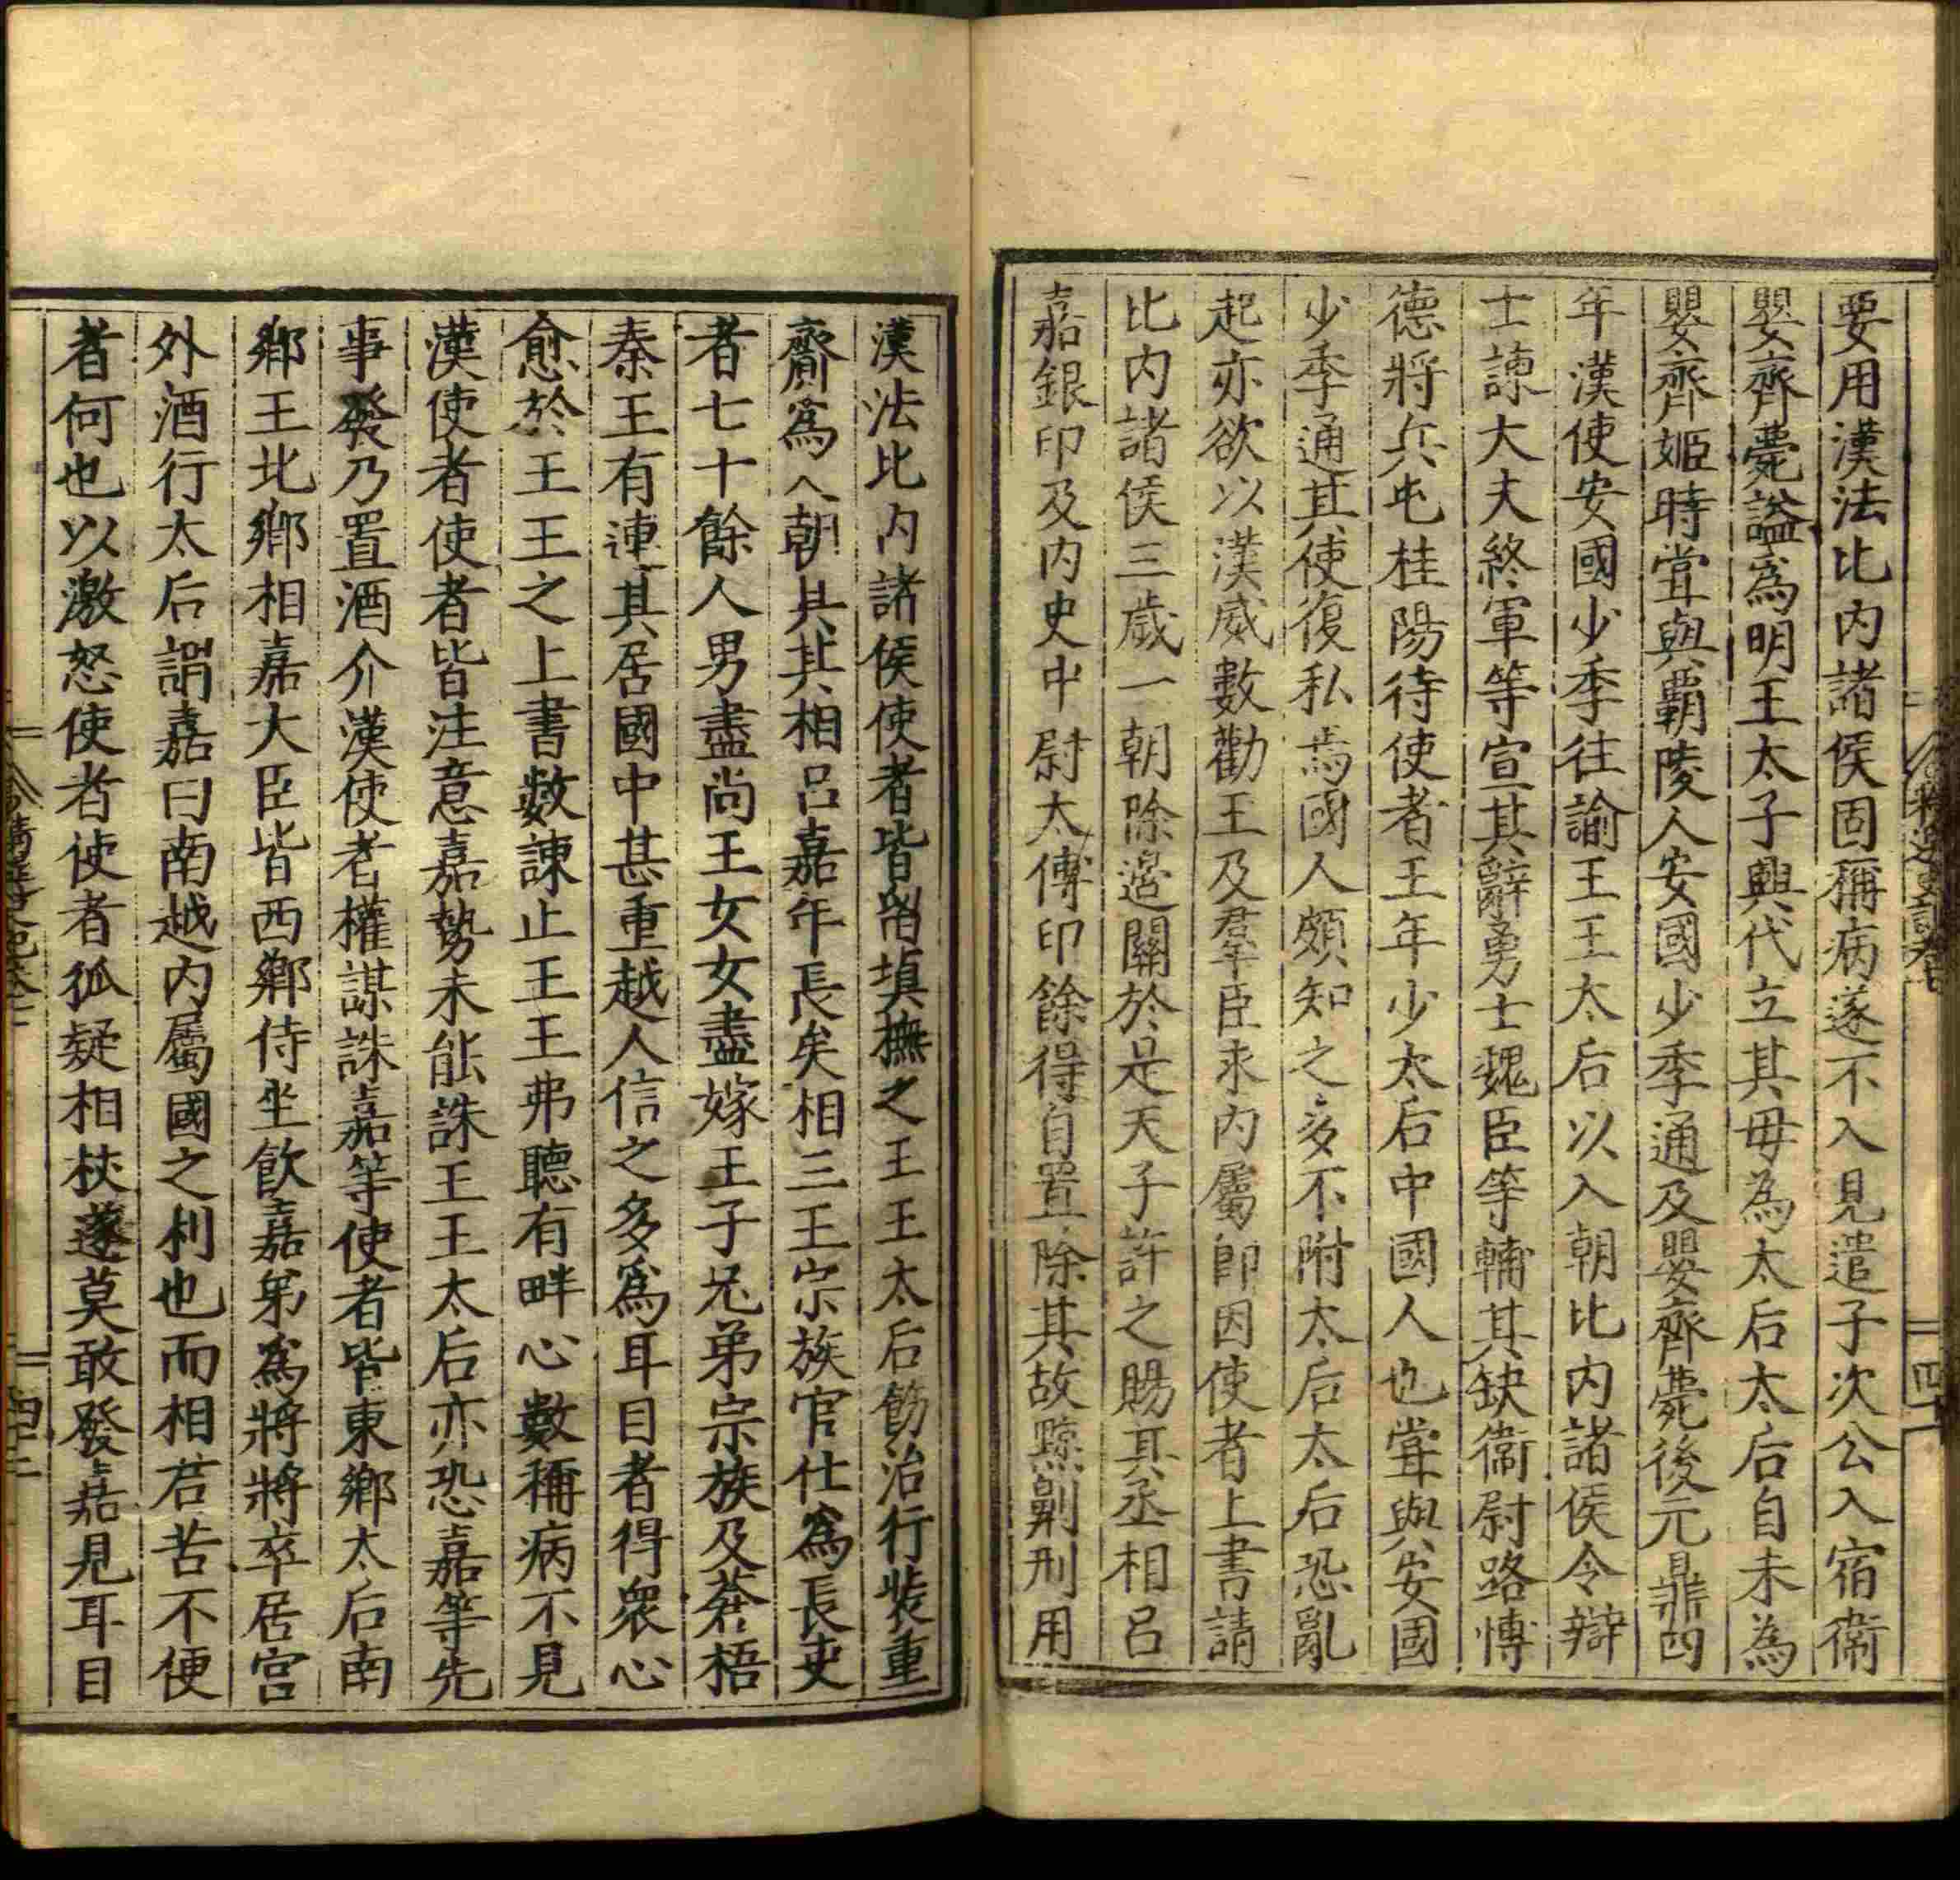 要用漢法比内諸侯固稱病遂不入見遣子次公入宿衛
嬰齊薨謚為明王太子興代立其母為太后太后自未為
嬰齊姬時甞與覇陵人安國少季通及嬰齊薨後元鼎四
年漢使安國少季往諭王王太后以入朝比内諸侯令辯
士諫大夫終軍等宣其辭勇士魏臣等輔其缺衞尉路愽
德將兵屯桂陽待使者王年少太后中國人也甞與安國
少季通其使復私焉國人頗知之多不附太后太后恐亂
起亦欲以漢威數勸王及羣臣求内屬即因使者上書請
比内諸侯三歲一朝除邉關於是天子許之賜其丞相吕
嘉銀印及内史中尉太傅印餘得自置除其故黥劓刑用
漢法比内諸侯使者皆留塡撫之王王太后飭治行裝重
齎爲入朝具其相吕嘉年長矣相三王宗族官仕爲長吏
者七十餘人男盡尚王女女盡嫁王子兄弟宗族及蒼梧
秦王有連其居國中甚重越人信之多爲耳目者得衆心
愈於王王之上書數諫止王王弗聽有畔心數稱病不見
漢使者使者皆注意嘉勢未能誅王王太后亦恐嘉等先
事發乃置酒介漢使者權謀誅嘉等使者皆東鄉太后南
鄉王北鄉相嘉大臣皆西鄉侍坐飲嘉弟爲將將卒居宫
外酒行太后謂嘉曰南越内屬國之利也而相君苦不便
者何也以激怒使者使者狐疑相杖遂莫敢發嘉見耳目